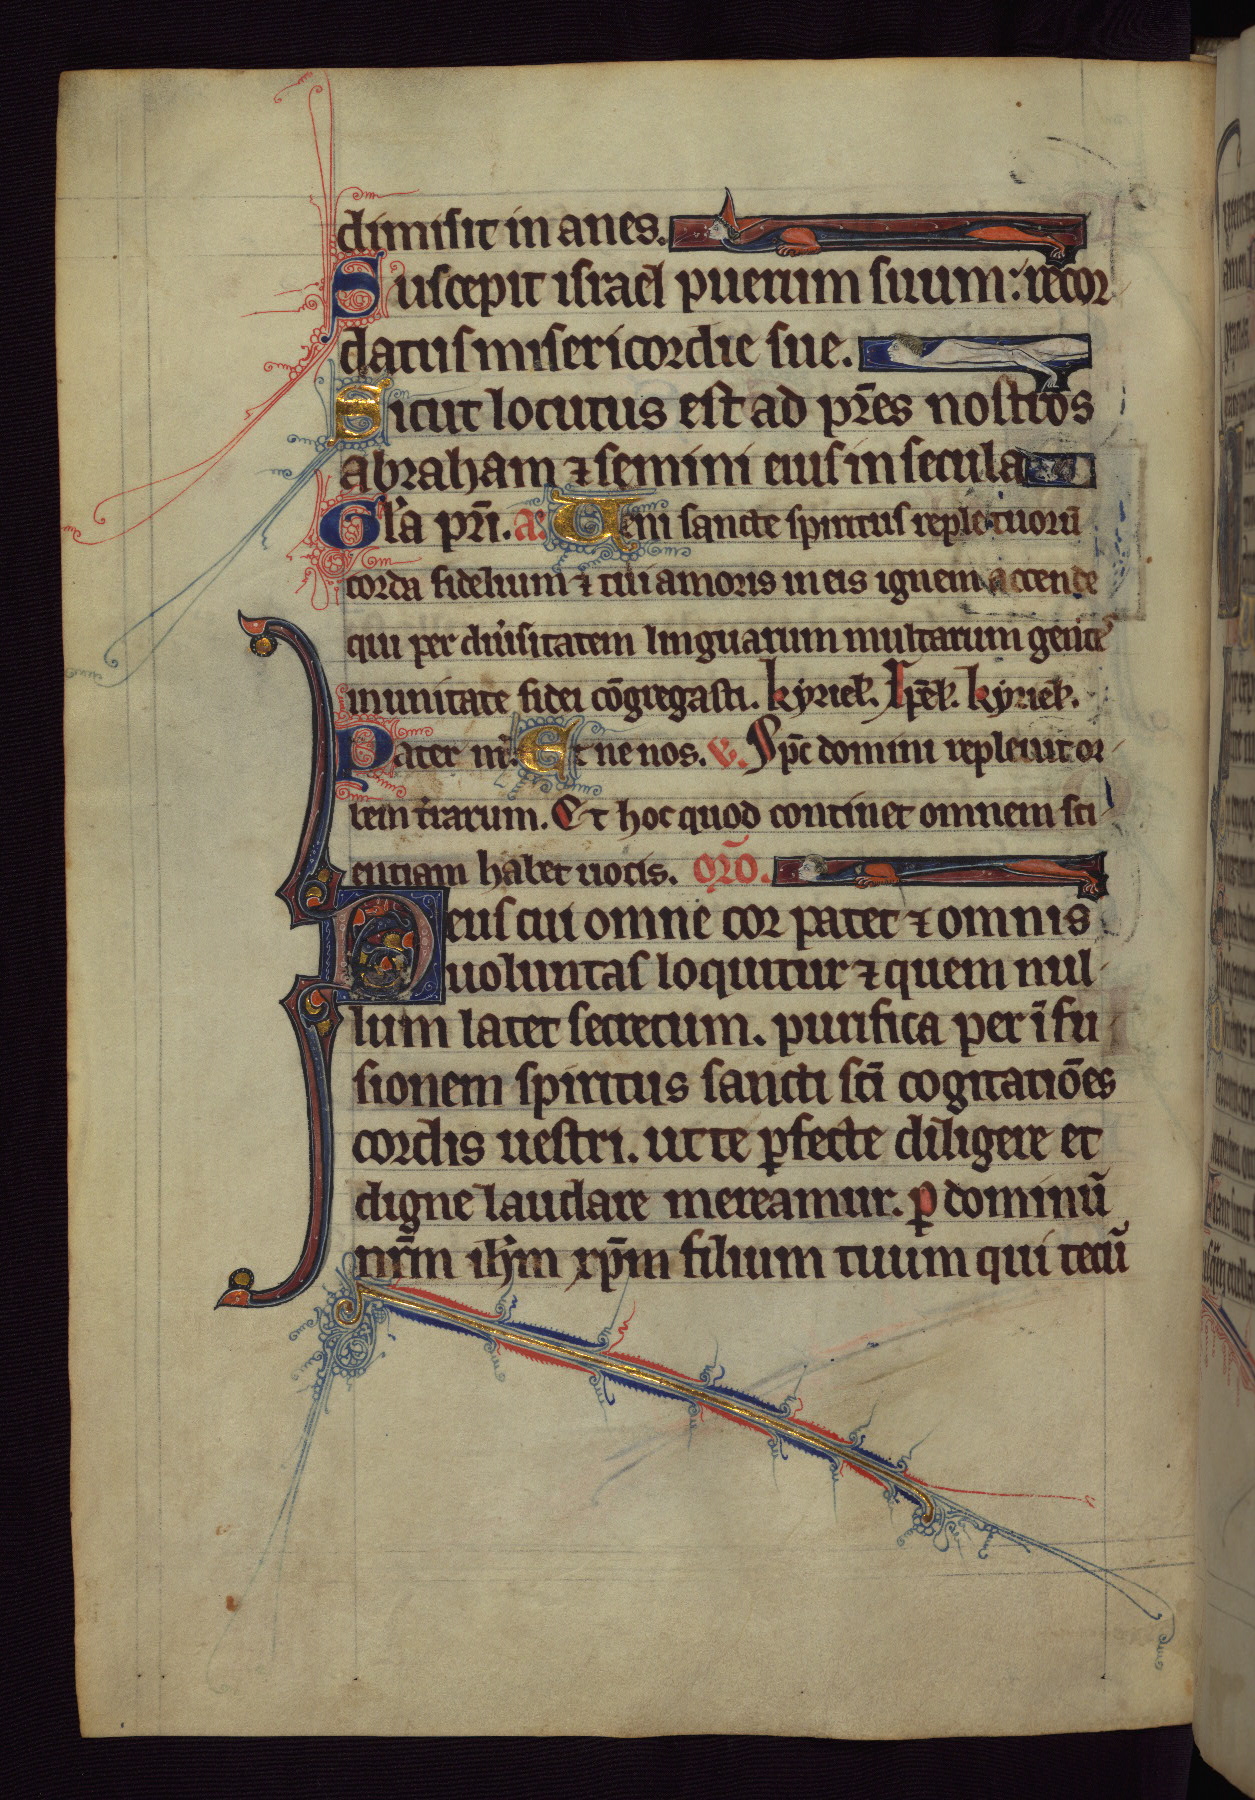 dimisit in anes.
Suscepit israel puerum suum: recor
datus misericordie sue.
Sicut locutus est ad pr̄es nostros
abraham ⁊ semini eius in secula
Gl̃a pr̄i. a. Veni sancte spiritus reple tuorū
corda fidelium ⁊ tui amoris in eis ignem accende
qui per diu̾sitatem linguarum multarum gente
in unitate fidei cōgregasti. kyriel̵. Xp̄el̵. kyriel̵.
Pater nr̄. Et ne nos. v. Sp̄c domini repleuit or
bem t̾rarum. Et hoc quod continet omnem sci
entiam habet uocis. orō.
Deus cui omne cor patet ⁊ omnis
uoluntas loquitur ⁊ quem nul
lum latet secretum. purifica per īfu
sionem spiritus sancti sc̄i cogitatiōes
cordis uestri. ut te ꝑfecte diligere et
digne laudare mereamur. ꝑ dominū
nr̄m ih̄m xp̄m filium tuum qui tecū